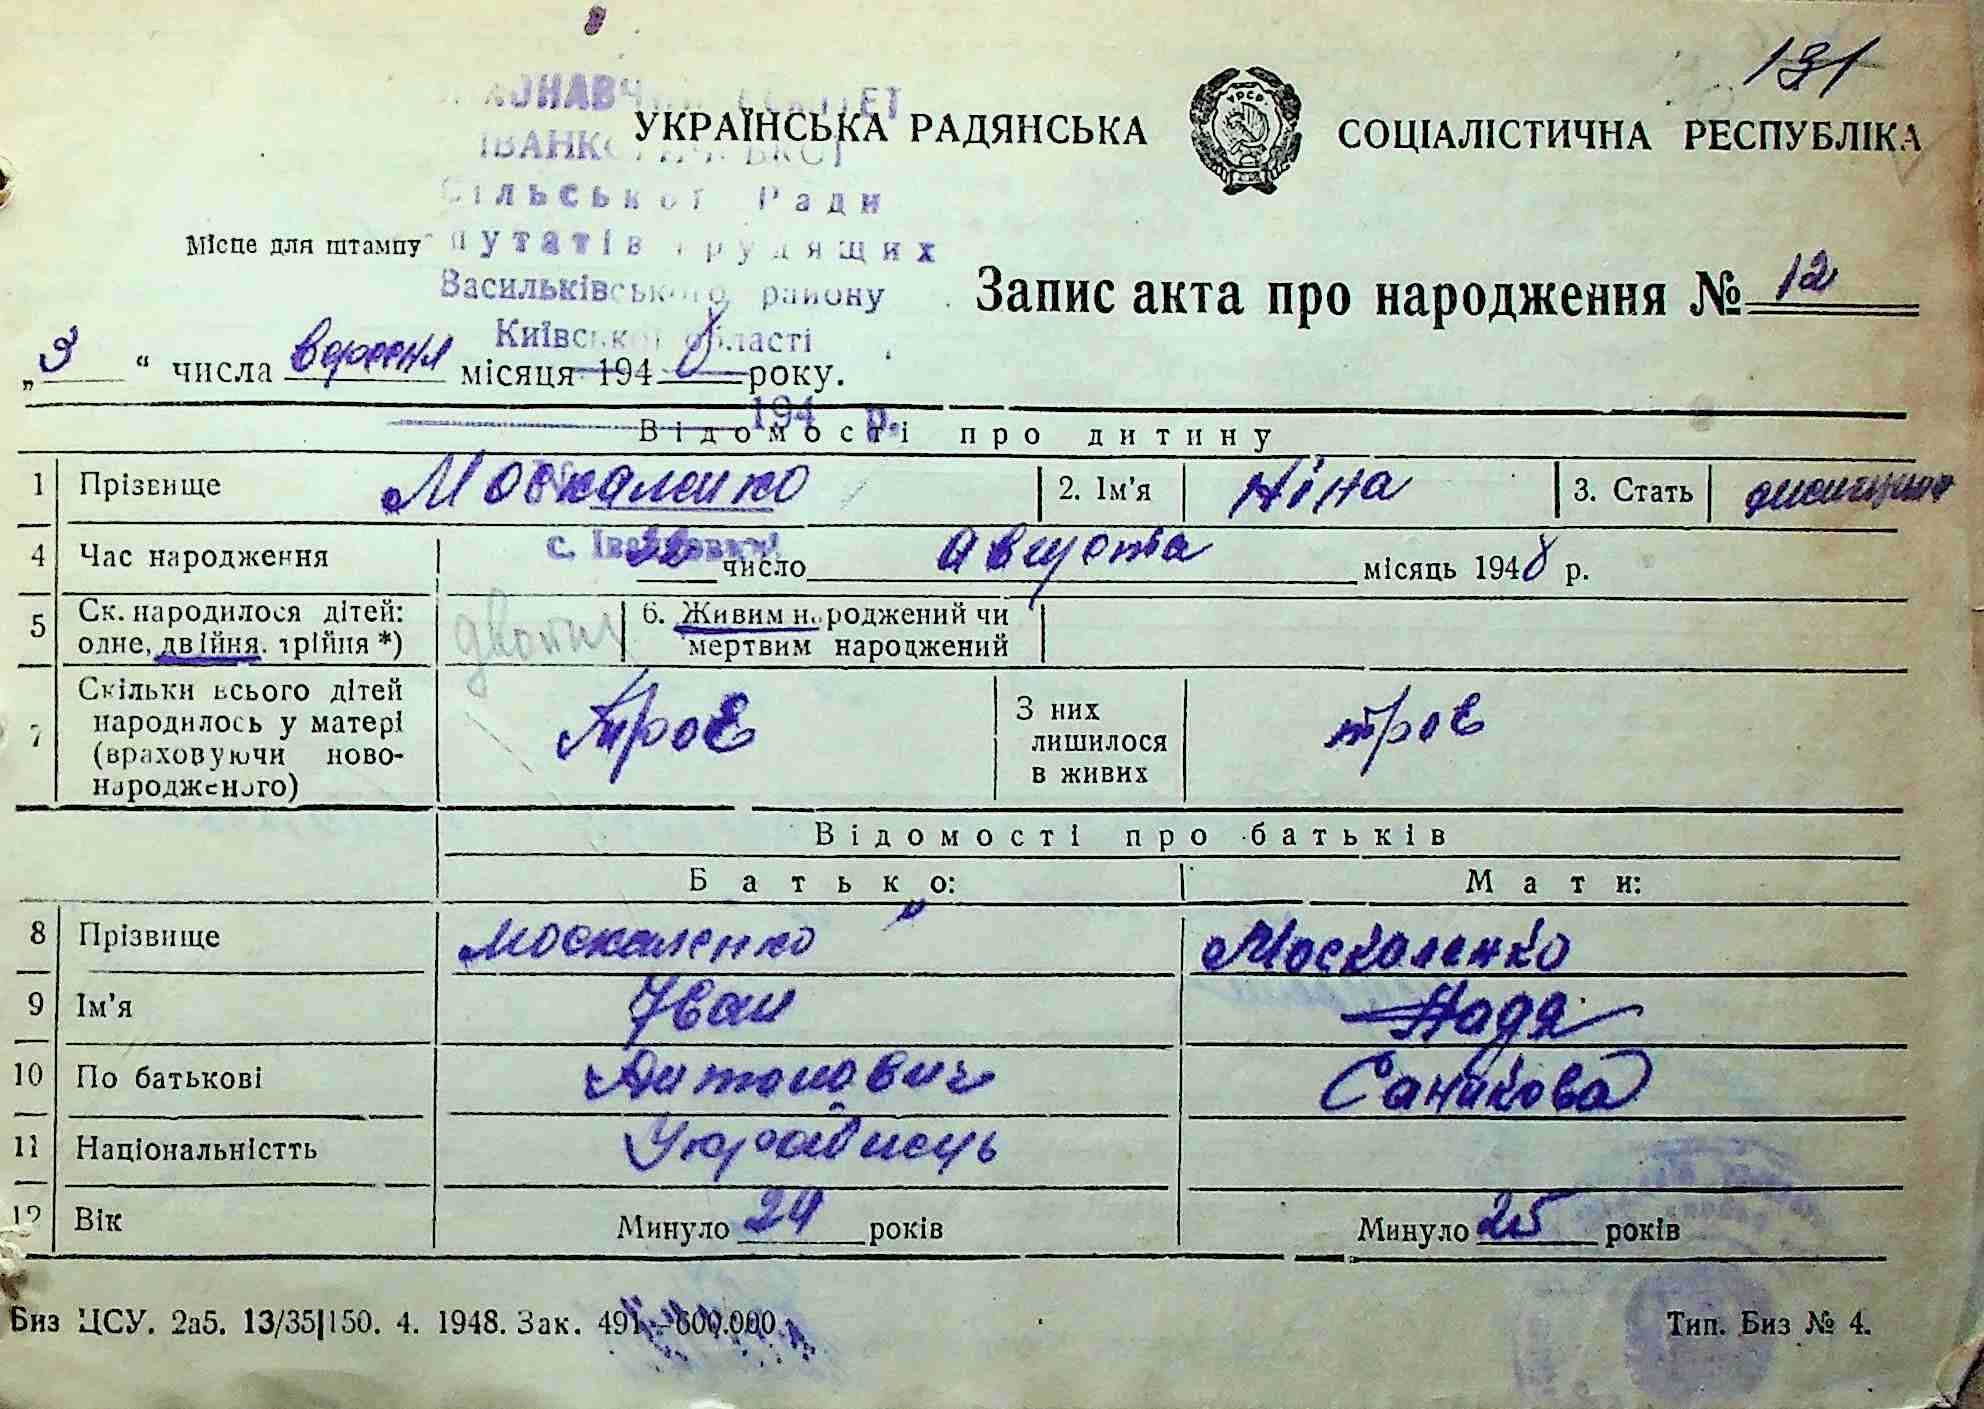 131
УКРАЇНСЬКА РАДЯНСЬКА СОЦІАЛІСТИЧНА РЕСПУБЛІКА
УРСР
Сільської Ради
Місце для штампу
путатів трудящих
Васильківського району
Київської області
Запис акта про народження № 12
„3“ числа вересня місяця 1948 року.
194 р.
Відомості про дитину
1 Прізвище Москаленко 2. Ім'я Ніна 3. Стать
4 Час народження число Августа місяць 1948 р.
5 Ск. народилося дітей: одне, двійня, трійня *) двойня 6. Живим народжений чи мертвим народжений
7 Скільки всього дітей народилось у матері (враховуючи новонародженого) Троє З них лишилося в живих троє
Відомості про батьків
Батько: Мати:
8 Прізвище Москаленко Москаленко
9 Ім'я Іван Надя
10 По батькові Антонович
11 Національністть Українець
12 Вік Минуло 24 років Минуло 25 років
Биз ЦСУ. 2а5. 13/35|150. 4. 1948. Зак. 491—600.000. Тип. Биз № 4.